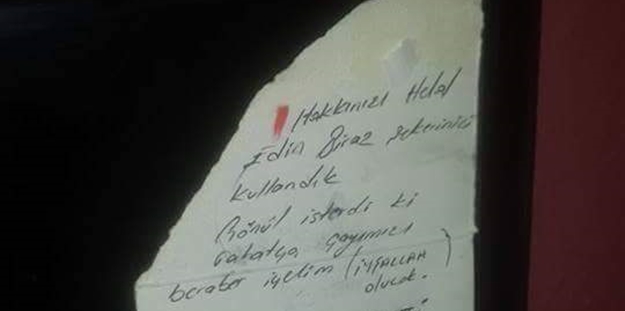 Hakkınızı Helal
Edin Biraz şekerinizi
kullandık
Gönül isterdi ki
rahatça çayımızı
beraber içelim (İNŞALLAH
olucak.